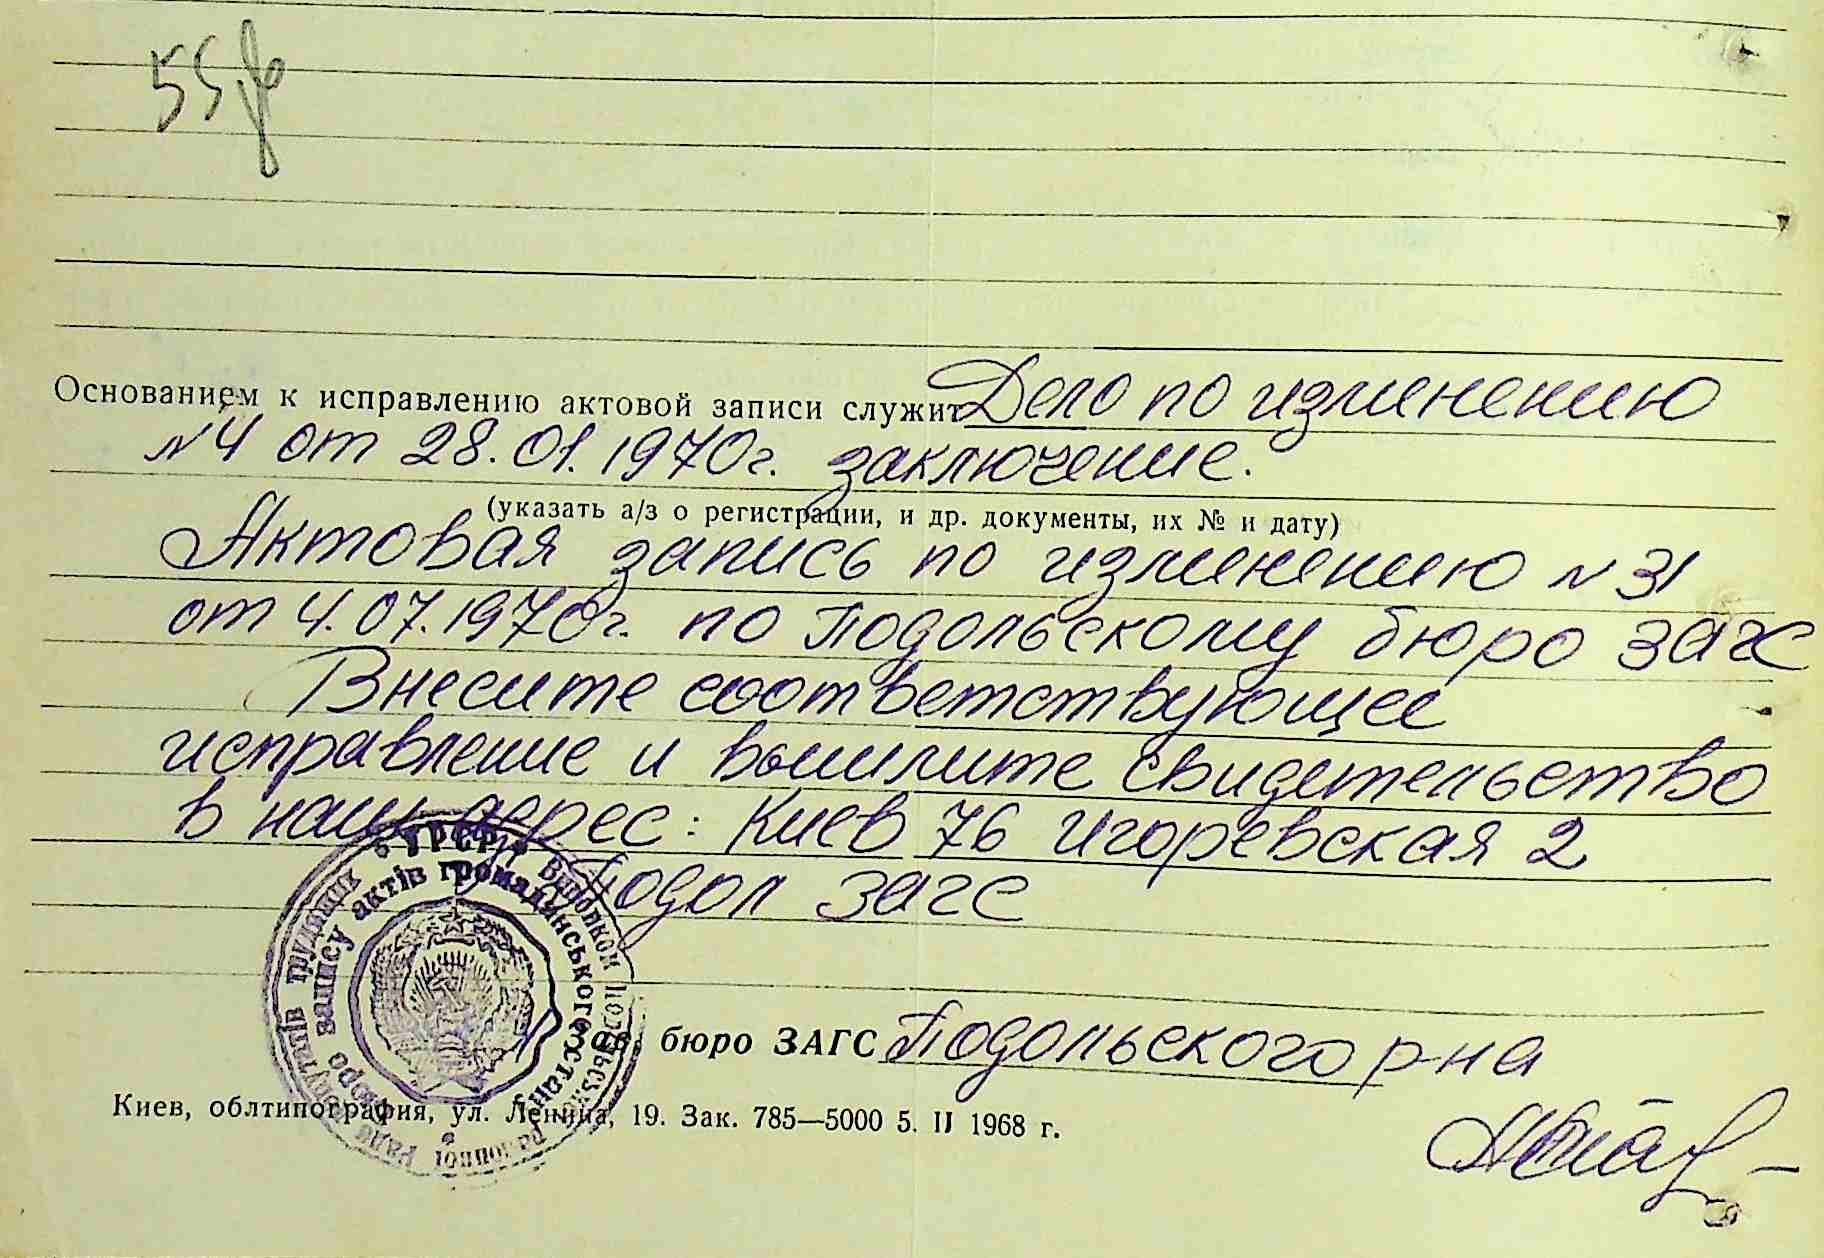 55
Основанием к исправлению актовой записи служит Дело по изменению
N4 от 28.01.1970г. заключение.
(указать а/з о регистрации, и др. документы, их № и дату)
Актовая запись по изменению N 31
от 4.07.1970г. по Подольскому бюро загс
Внесите соответствующее
исправление и вышлите свидетельство
в наш адрес: Киев 76 Игоревская 2
Подол загс
Зав. бюро ЗАГС Подольского р-на
Киев, облтипография, ул. Ленина, 19. Зак. 785—5000 5. II 1968 г.
УРСР Виконком Подільської районної Ради депутатів трудящих
бюро запису актів громадянського стану